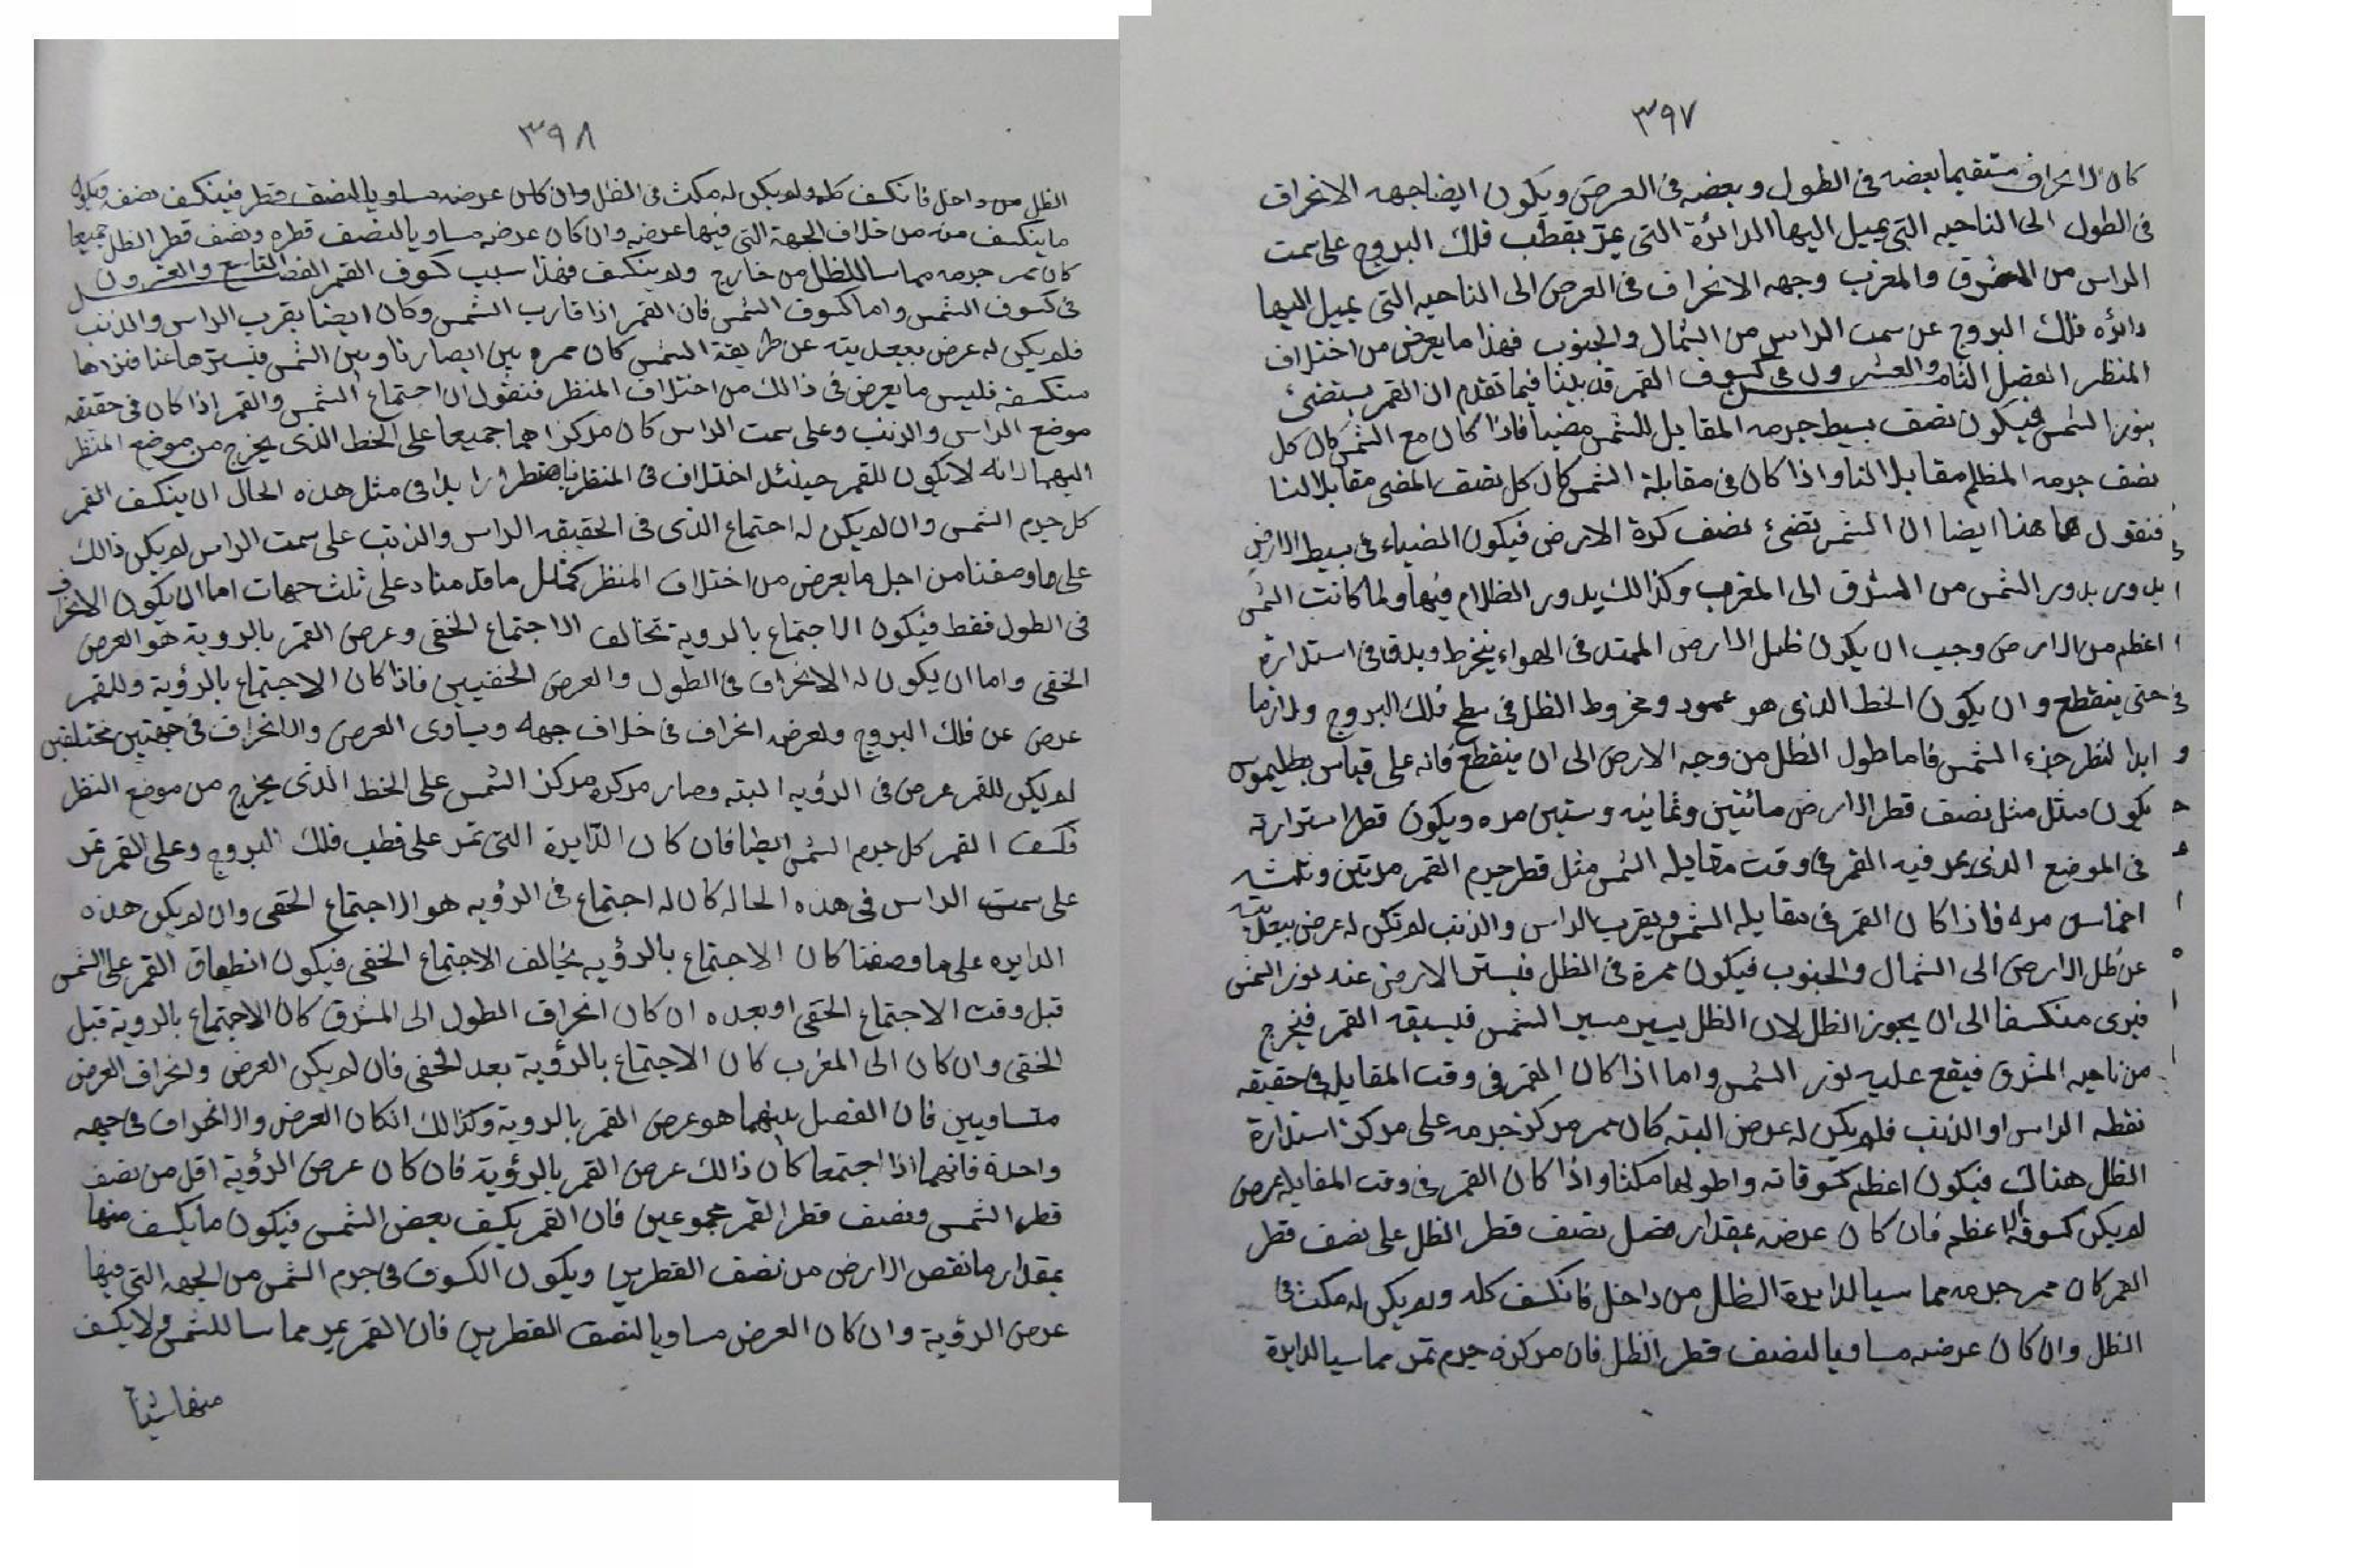 ٣٩٧
كان الانحراف مستقيما بعضه فى الطول وبعضه فى العرض ويكون ايضا جهه الانحراف
فى الطول الى الناحيه التى يميل اليها الدائرة التى يمرّ بقطب فلك البروج على سمت
الراس من المشرق والمغرب وجهه الانحراف فى العرض الى الناحيه التى يميل اليها
دائره فلك البروج عن سمت الراس من الشمال والجنوب فهذا ما يعرض من اختلاف
المنظر الفصل الثامن والعشرون فى كسوف القمر قد بينا فيما تقدم ان القمر يستضئ
بنور الشمس فيكون نصف بسيط جرمه المقابل للشمس مضيا فاذا كان مع الشمس كان كل
نصف جرمه المظلم مقابلا لنا واذا كان فى مقابلة الشمس كان كل نصف المضى مقابلا لنا
فنقول هاهنا ايضا ان الشمس تضئ نصف كرة الارض فيكون الضياء فى بسيط الارض
يدور بدور الشمس من المشرق الى المغرب وكذالك يدور الظلام فيها ولما كانت الشمس
اعظم من الارض وجب ان يكون ظل الارض الممتد فى الهواء ينخرط ويدق فى استدارة
حتى ينقطع وان يكون الخط الذى هو عمود ومخروط الظل فى سطح فلك البروج ولازما
ابدا لنظر جزء الشمس فاما طول الظل من وجه الارض الى ان ينقطع فانه على قياس بطليموس
يكون مثل مثل نصف قطر الارض مائتين وثمانيه وستين مره ويكون قطر استدارته
فى الموضع الذى يمر فيه القمر فى وقت مقابله الشمس مثل قطر جرم القمر مرتين وثلثه
اخماس مره فاذا كان القمر فى مقابله الشمس وبقرب الراس والذنب لم تكن له عرض يبعد بته
عن ظل الارض الى الشمال والجنوب فيكون ممرة فى الظل فيستر الارض عنه نور الشمس
فيرى منكسفا الى ان يجوز الظل لان الظل يسير مسير الشمس فيسبقه القمر فيخرج
من ناحيه المشرق فيقع عليه نور الشمس واما اذا كان القمر فى وقت المقابله فى حقيقه
نقطه الراس او الذنب فلم يكن له عرض البته كان ممر مركز جرمه على مركز استدارة
الظل هناك فيكون اعظم كسوفاته واطولها مكثا واذا كان القمر فى وقت المقابله عرض
لم يكن كسوفه الاعظم فان كان عرضه بمقدار فضل نصف قطر الظل على نصف قطر
القمر كان ممر جرمه مماسيا لدايرة الظل من داخل فانكسف كله ولم يكن له مكث فى
الظل وان كان عرضه مساويا لنصف قطر الظل فان مركزه جرم تمر مماسيا لدايرة
٣٩٨
الظل من داخل فانكسف كله ولم يكن له مكث فى الظل وان كان عرضه مساويا لنصف قطر فينكسف نصف ويكون
ما ينكسف منه من خلاف الجهة التى فيها عرضه وان كان عرضه مساويا لنصف قطره ونصف قطر الظل جميعا
كان ممر جرمه مماسا للظل من خارج ولم ينكسف فهذا سبب كسوف القمر الفصل التاسع والعشرون
فى كسوف الشمس واما كسوف الشمس فان القمر اذا قارب الشمس وكان ايضا بقرب الراس والذنب
فلم يكن له عرض يبعد بته عن طريقة الشمس كان ممره بين ابصارنا وبين الشمس فيسترها عنا فنراها
منكسفه فليس ما يعرض فى ذالك من اختلاف المنظر فنقول ان اجتماع الشمس والقمر اذا كان فى حقيقه
موضع الراس والذنب وعلى سمت الراس كان مركزاهما جميعا على الخط الذى يخرج من موضع المنظر
اليهما لانه لا يكون للقمر حينئذ اختلاف فى المنظر فاضطرارا بدا فى مثل هذه الحال ان ينكسف القمر
كل جرم الشمس وان لم يكن له اجتماع الذى فى الحقيقه الراس والذنب على سمت الراس لم يكن ذالك
على ما وصفنا من اجل ما يعرض من اختلاف المنظر كمثل ما قدمنا د على ثلث جهات اما ان يكون الانحراف
فى الطول فقط فيكون الاجتماع بالروية تخالف الاجتماع الخفى وعرض القمر بالروية هو العرض
الخفى واما ان يكون له الانحراف فى الطول والعرض الخفيين فاذا كان الاجتماع بالرؤية وللقمر
عرض عن فلك البروج ولعرضه انحراف فى خلاف جهه ويساوى العرض والانحراف فى جهتين مختلفين
لم يكن للقمر عرض فى الرؤيه البته وصار مركزه مركز الشمس على الخط الذى يخرج من موضع النظر
فكسف القمر كل جرم الشمس ايضا فان كان الدّايرة التى تمر على قطب فلك البروج وعلى القمر تمر
على سمت الراس فى هذه الحاله كان له اجتماع فى الرؤيه هو الاجتماع الحقى وان لم يكن هذه
الدايره على ما وصفنا كان الاجتماع بالرؤيه يخالف الاجتماع الخفى فيكون انطباق القمر على الشمس
قبل وقت الاجتماع الحقى او بعده ان كان انحراف الطول الى المشرق كان الاجتماع بالروية قبل
الخفى وان كان الى المغرب كان الاجتماع بالرؤية بعد الخفى فان لم يكن العرض وانحراف العرض
متساويين فان الفصل بينهما هو عرض القمر بالروية وكذالك ان كان العرض والانحراف فى جهه
واحدة فانهما اذا اجتمعا كان ذالك عرض القمر بالرؤية فان كان عرض الرؤية اقل من نصف
قطر الشمس ونصف قطر القمر مجموعين فان القمر يكسف بعض الشمس فيكون ما يكسف منها
بمقدار ما نقص الارض من نصف القطرين ويكون الكسوف فى جرم الشمس من الجهه التى فيها
عرض الرؤية وان كان العرض مساويا لنصف القطرين فان القمر يمر مماسا للشمس ولا يكسف
منها شيئا